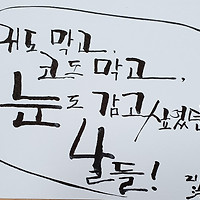 귀도 막고,
코도 막고,
눈도 감고 싶었던
날들!